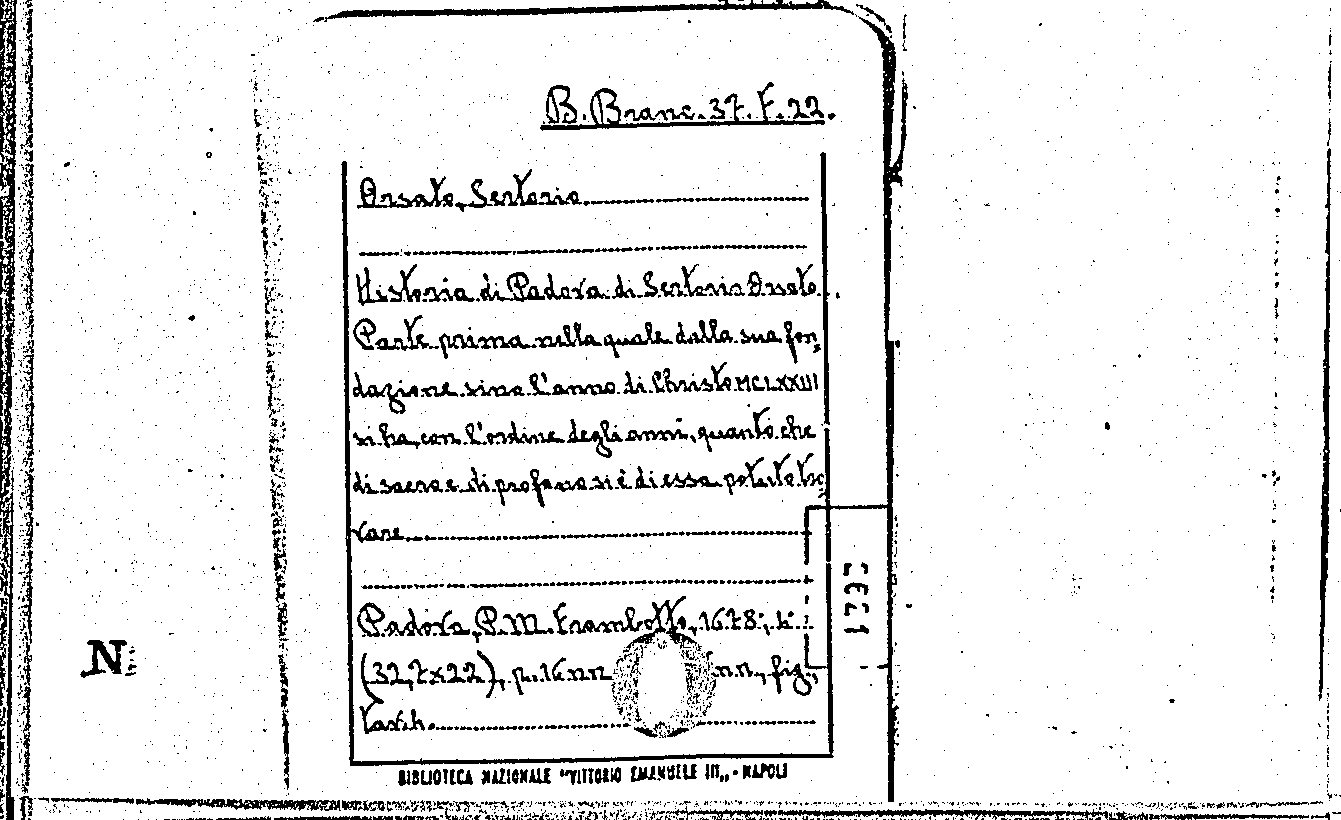 B. Branc. 37. F. 22.
Orsato, Sertorio
Historia di Padova di Sertorio Orsato.
Parte prima nella quale dalla sua fon=
dazione sino l'anno di Christo MCLXXIII
si ha, con l'ordine degli anni, quanto che
di sacro e di profano si è di essa potuto tro=
vare
Padova, P. M. Frambotto, 1678; 4°.
(32,7x22), p. 16 nn nn., fig.,
tavv.
BIBLIOTECA NAZIONALE "VITTORIO EMANUELE III„ - NAPOLI
N